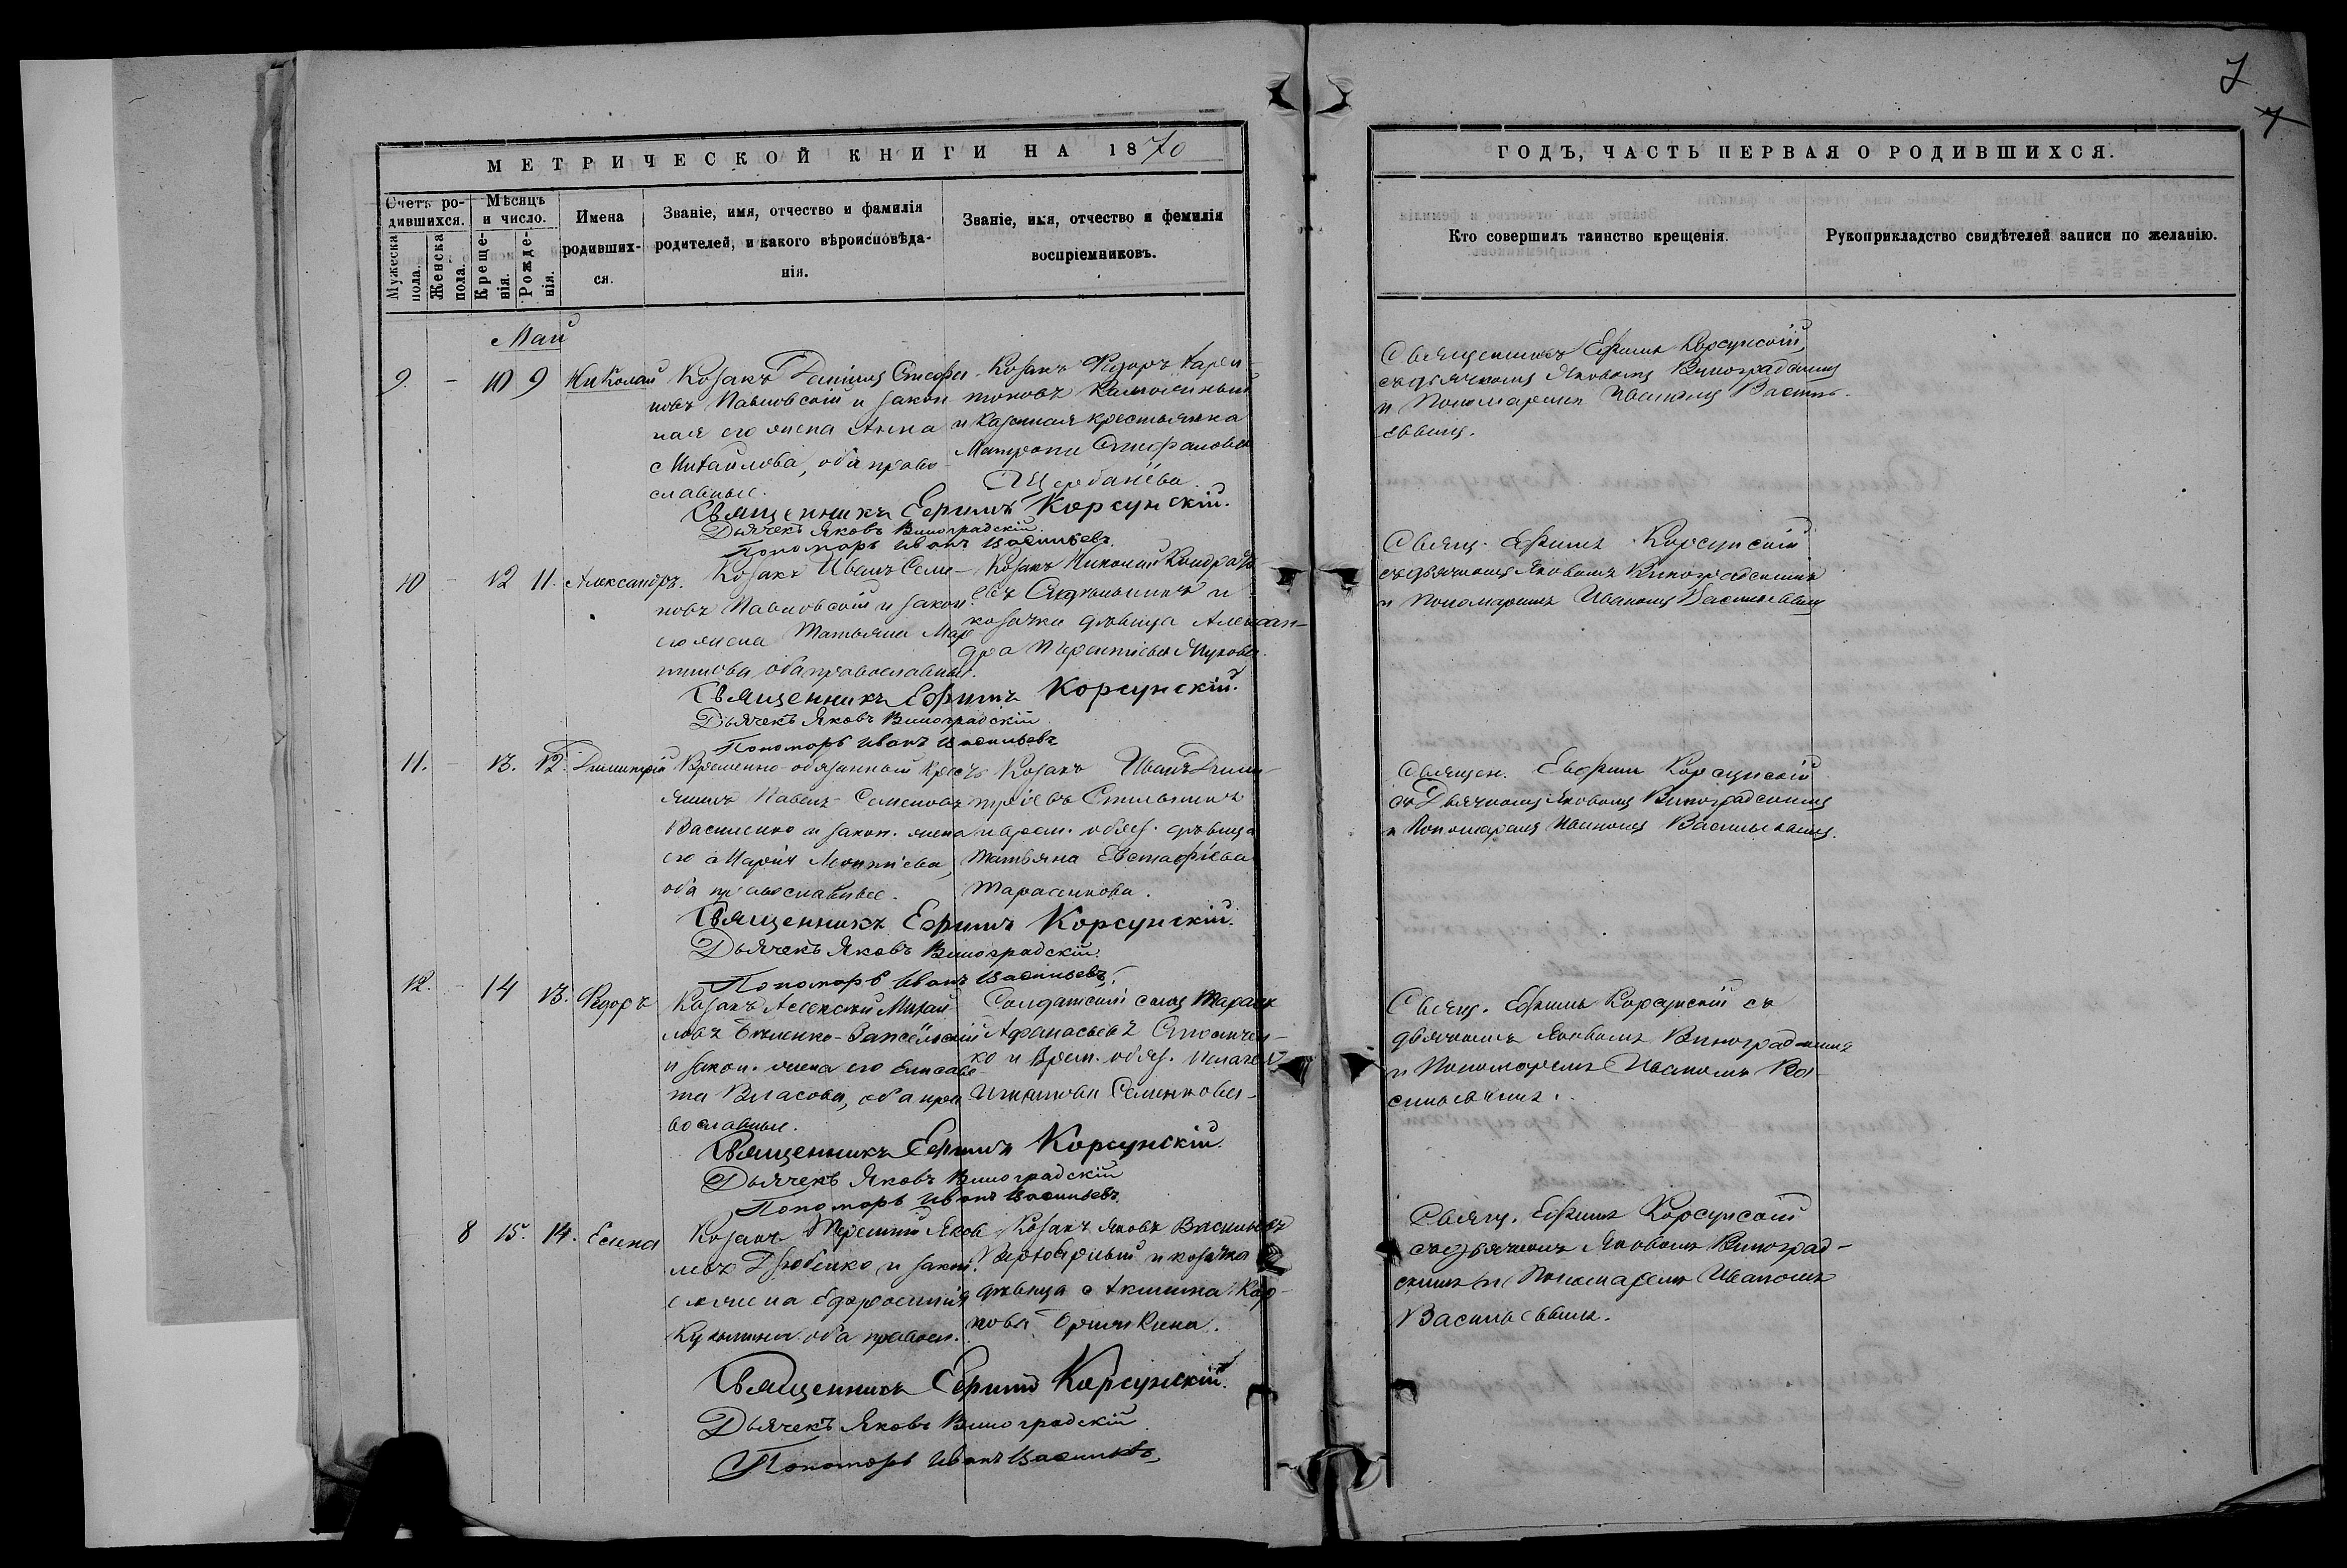 7
7
МЕТРИЧЕСКОЙ КНИГИ НА 1870
Счетъ ро-
дившихся.
Мужеска
пола.
Женска
пола.
Мѣсяцъ
и число.
Креще-
нія.
Рожде-
нія.
Имена
родивших-
ся.
Званіе, имя, отчество и фамилія
родителей, и какого вѣроисповѣда-
нія.
Званіе, имя, отчество и фемилія
воспріемниковъ.
Май
9. - 10 9 Николай
Козакъ Даніилъ Стефа
новъ Павловскій и закон
ная его жена Анна
Михайлова, оба право-
славные.
Козакъ Федоръ
и казенная крестьянка
Стефанова
Щербанёва.
Священникъ Ефимъ Корсунскій.
Дьячекъ Яковъ Виноградскій.
Пономарь Иванъ Васильевъ.
10 - 12 11. Александръ.
Козакъ Иванъ Семе-
новъ Павловскій и закон.
его жена Татьяна Мар
оба православные.
Козакъ Николай Кондрать
евъ и
козачка дѣвица Алексан-
дра
Священникъ Ефимъ Корсунскій.
Дьячекъ Яковъ Виноградскій
Пономарь Иванъ Васильевъ
11. - 13. 12. Димитрій
Временно-обязанный крест
янинъ Павелъ Семеновъ
Василенко и закон. жена
его Марія
оба православные.
Козакъ Иванъ Дими-
тріевъ
и врем. обяз. дѣвица
Татьяна Евстафіева
Тарасенкова.
Священникъ Ефимъ Корсунскій.
Дьячекъ Яковъ Виноградскій.
Пономарь Иванъ Васильевъ.
12. - 14 13. Федоръ
Козакъ Алексѣй Михай
ловъ
и закон. жена его Елисаве
та Власова, оба пра
вославные.
Солдатскій сынъ Тарасъ
Афанасьевъ
ко и врем. обяз. Пелагея
Игнатова Семенкова
Священникъ Ефимъ Корсунскій.
Дьячекъ Яковъ Виноградскій
Пономарь Иванъ Васильевъ.
8 15. 14. Елена
Козакъ Терентій Яков
левъ Дзюбенко и закон.
его жена Ефросинія
оба правосл.
Козакъ Яковъ Васильевъ
и козачка
дѣвица Акилина Кар-
пова
Священникъ Ефимъ Корсунскій.
Дьячекъ Яковъ Виноградскій
Пономарь Иванъ Васильевъ
ГОДЪ, ЧАСТЬ ПЕРВАЯ О РОДИВШИХСЯ.
Кто совершилъ таинство крещенія.
Рукоприкладство свидѣтелей записи по желанію.
Священникъ Ефимъ Корсунскій,
съ дьячкомъ Яковомъ Виноградскимъ
и Пономаремъ Иваномъ Василь-
евымъ.
Свящ. Ефимъ Корсунскій
съ дьячкомъ Яковомъ Виноградскимъ
и Пономаремъ Иваномъ Васильевымъ
Священ. Ефимъ Корсунскій
съ Дьячкомъ Яковомъ Виноградскимъ
и Пономаремъ Иваномъ Васильевымъ.
Свящ. Ефимъ Корсунскій съ
дьячкомъ Яковомъ Виноградскимъ
и Пономаремъ Иваномъ Ва
сильевымъ.
Свящ. Ефимъ Корсунскій
съ дьячкомъ Яковомъ Виноград-
скимъ и Пономаремъ Иваномъ
Васильевымъ.